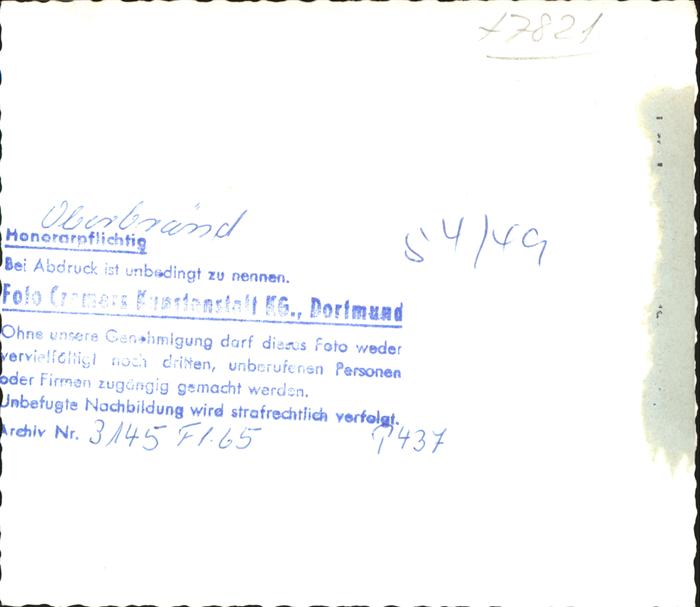 17821
Oberbränd
54/49
Honorarpflichtig
Bei Abdruck ist unbedingt zu nennen.
Foto Cramers Kunstanstalt KG., Dortmund
Ohne unsere Genehmigung darf dieses Foto weder
vervielfältigt noch dritten, unberufenen Personen
oder Firmen zugängig gemacht werden.
Unbefugte Nachbildung wird strafrechtlich verfolgt.
Archiv Nr. 3145 F1.65 P437